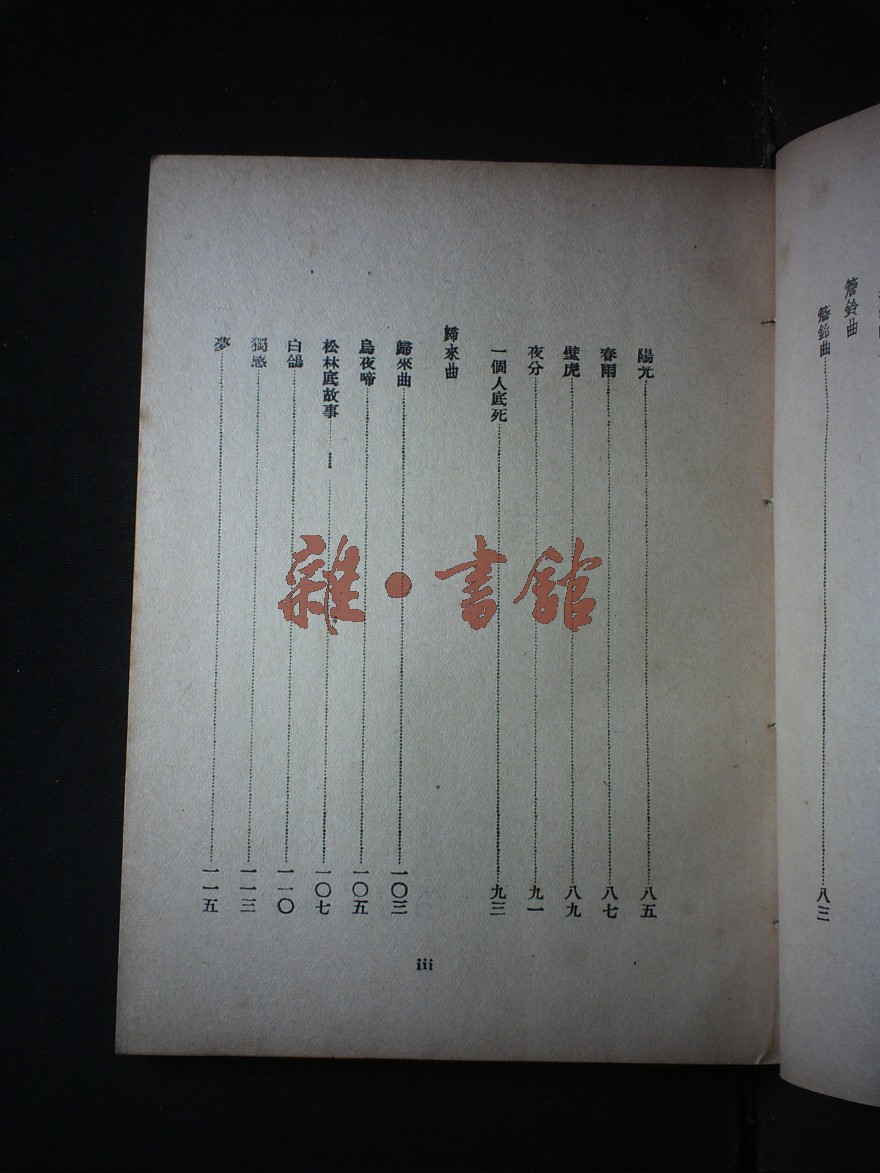 簷鈴曲
簷鈴曲 八三
陽光 八五
春雨 八七
壁虎 八九
夜分 九一
一個人底死 九三
歸來曲
歸來曲 一〇三
烏夜啼 一〇五
松林底故事 一〇七
白鴿 一一〇
獨感 一一三
夢 一一五
iii
雜·書館